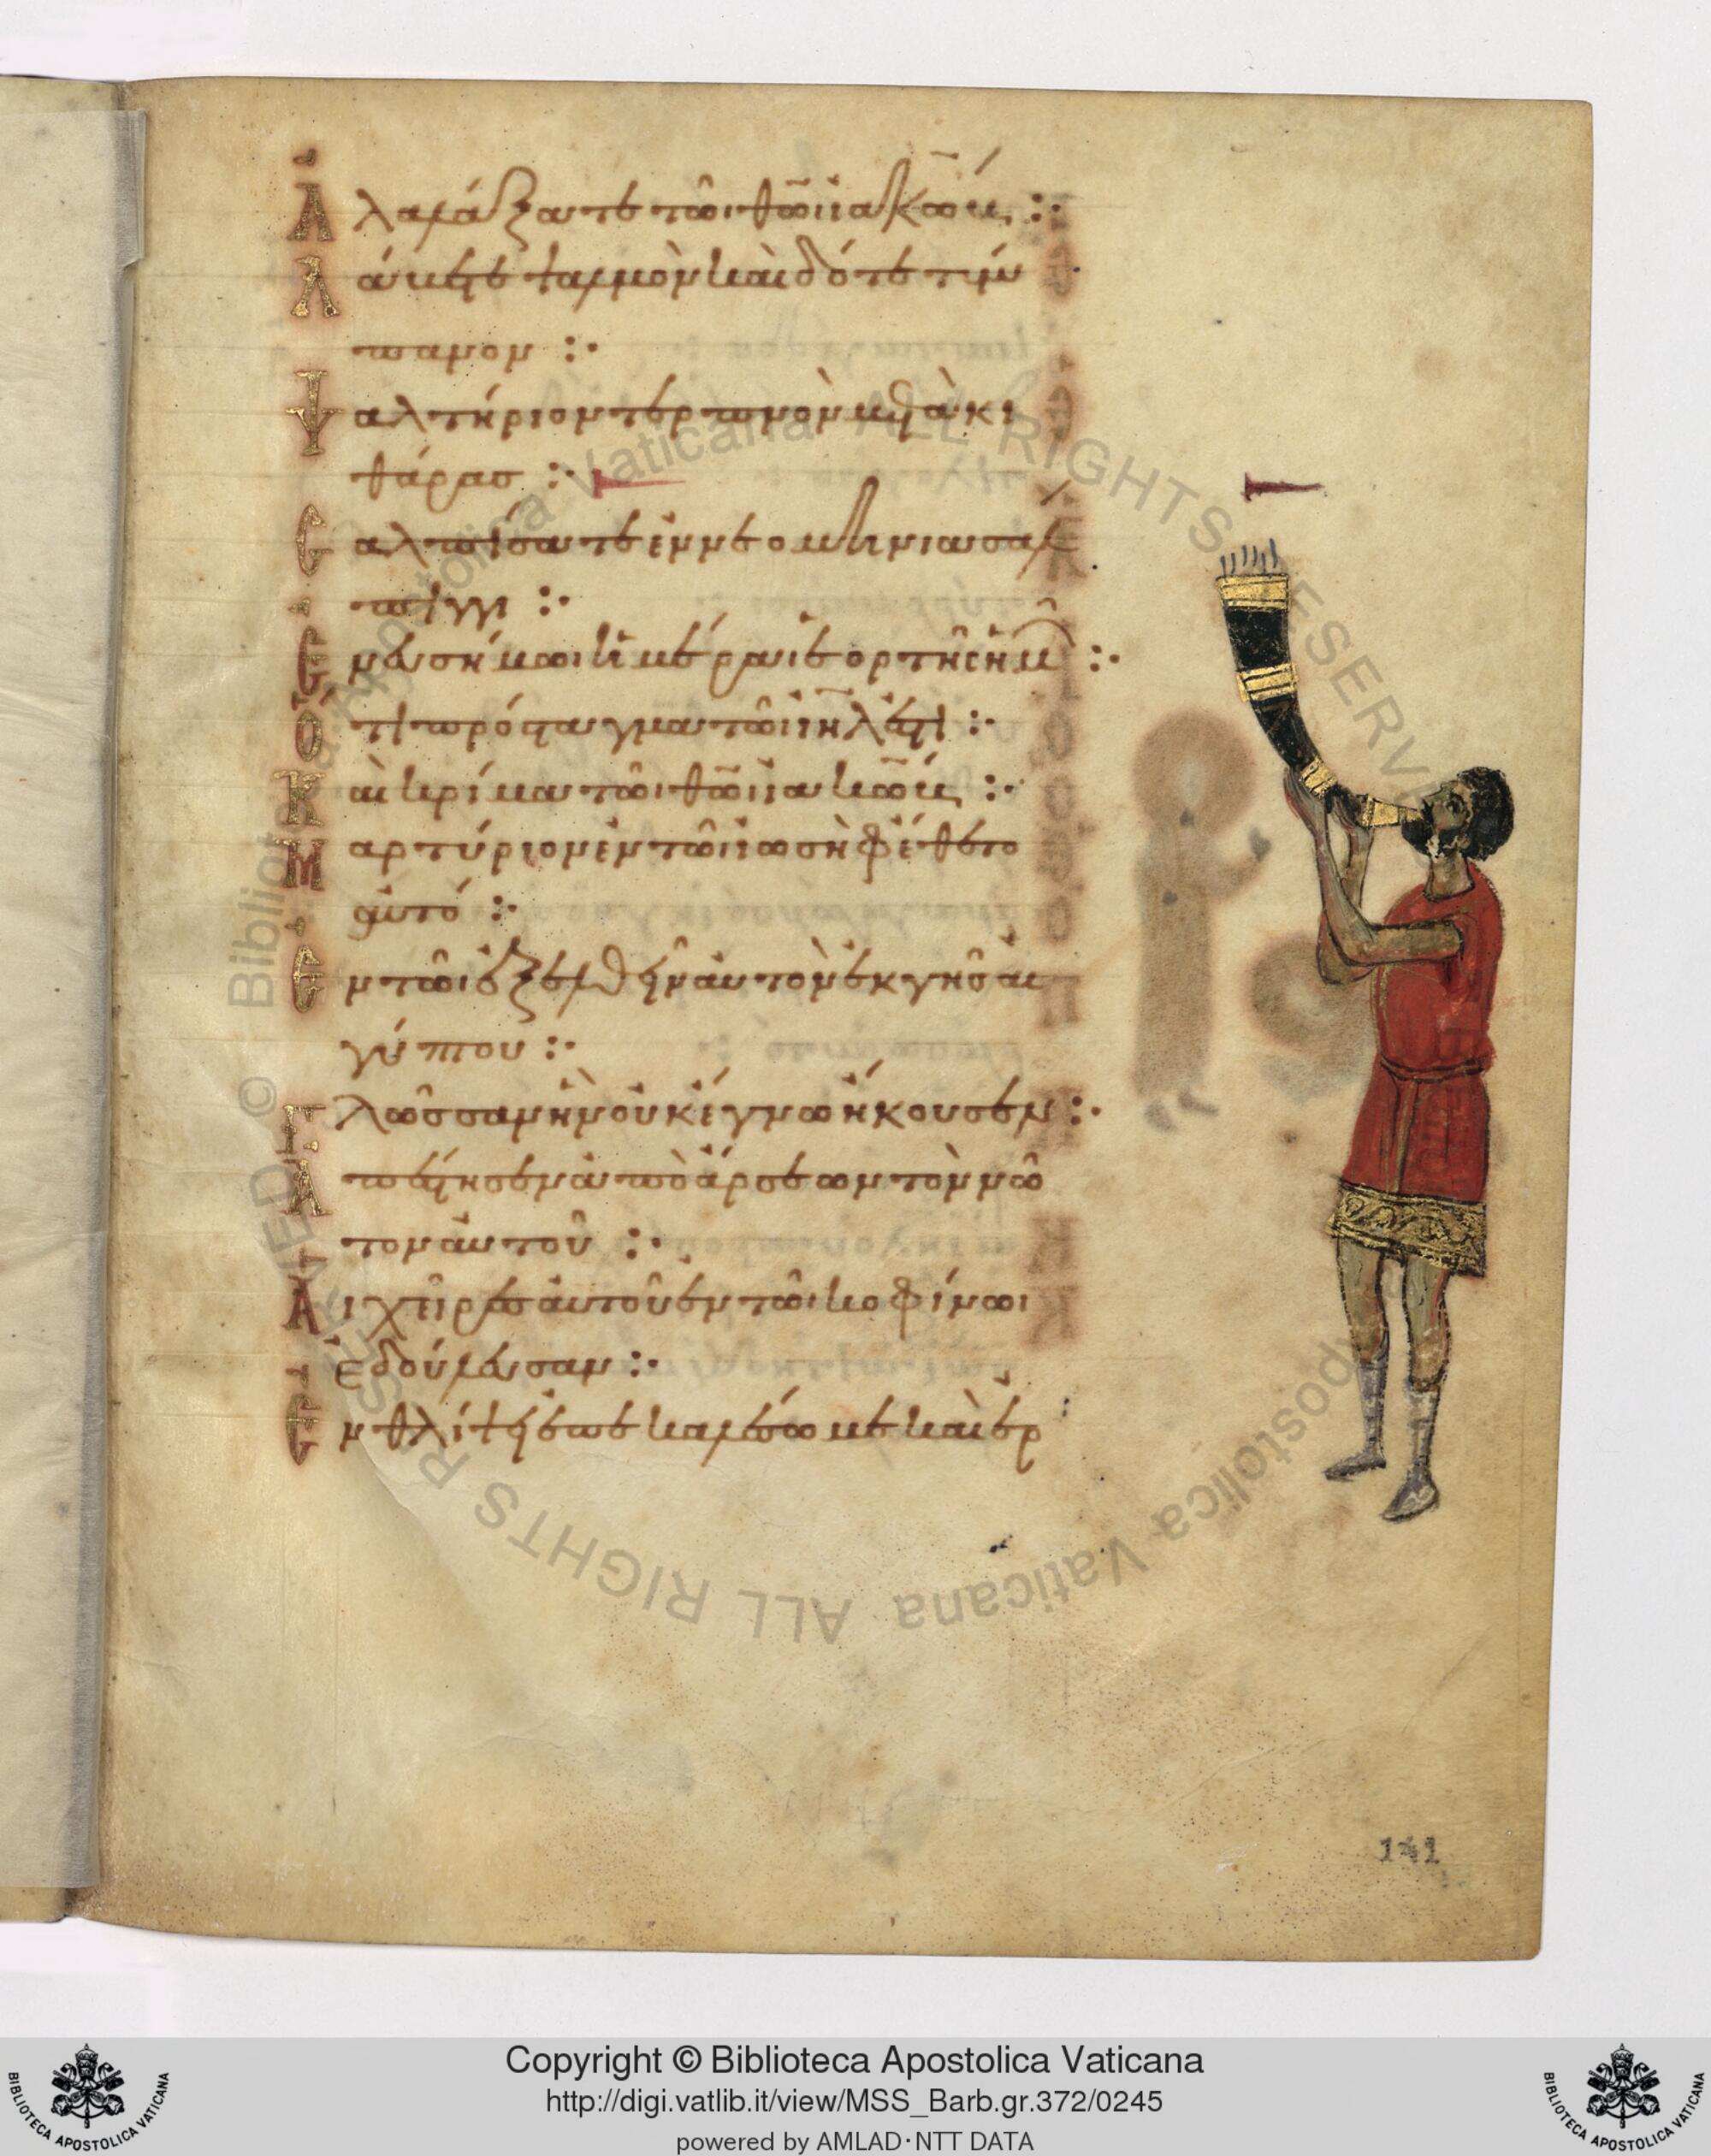 Ἀλαλάξατε τῶι θῶ̅ι ἰακώ̅β :·
Λάβετε ψαλμὸν καὶ δότε τύμ
πανον :·
Ψαλτήριον τερπνὸν μετὰ κι
θάρας :·
Σαλπίσατε ἐν νεομηνία σάλ
πιγγι :·
Ἐν εὐσήμωι ἡμέρα ἑορτῆς ἡμῶν :·
Ὅτι πρόσταγμα τῶι ἰη̅λ ἐστὶ :·
Καὶ κρίμα τῶι θῶ̅ι ἰακώ̅β :·
Μαρτύριον ἐν τῶι ἰωσὴφ ἔθετο
αὐτό :·
Ἐν τῶι ἐξελθεῖν αὐτὸν ἐκ γῆς αἰ
γύπτου :·
Γλῶσσαν ἣν οὐκ ἔγνω ἤκουσεν :·
Ἀπέστησεν ἀπὸ ἄρσεων τὸν νῶ
τον αὐτοῦ :·
Αἱ χεῖρες αὐτοῦ ἐν τῶι κοφίνωι
ἐδούλευσαν :·
Ἐν θλίψει ἐπεκαλέσω με καὶ ἐρ
141
Biblioteca Apostolica Vaticana ALL RIGHTS RESERVED ©
Biblioteca Apostolica Vaticana ALL RIGHTS RESERVED ©
Copyright © Biblioteca Apostolica Vaticana
http://digi.vatlib.it/view/MSS_Barb.gr.372/0245
powered by AMLAD·NTT DATA
BIBLIOTECA APOSTOLICA VATICANA
BIBLIOTECA APOSTOLICA VATICANA